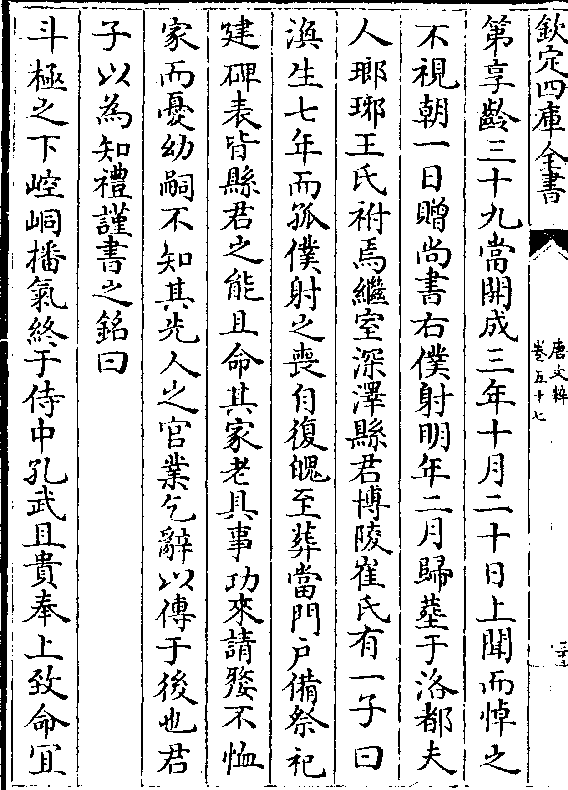 欽定四庫全書
唐文粹
卷五十七
第享齡三十九當開成三年十月二十日上聞而悼之
不視朝一日贈尚書右僕射明年二月歸塟于洛都夫
人瑯琊王氏祔焉繼室深澤縣君博陵崔氏有一子曰
渙生七年而孤僕射之喪自復魄至葬當門戶備祭祀
建碑表皆縣君之能且命其家老具事功來請嫠不恤
家而憂幼嗣不知其先人之官業乞辭以傳于後也君
子以為知禮謹書之銘曰
斗極之下崆峒播氣終于侍中孔武且貴奉上致命冝